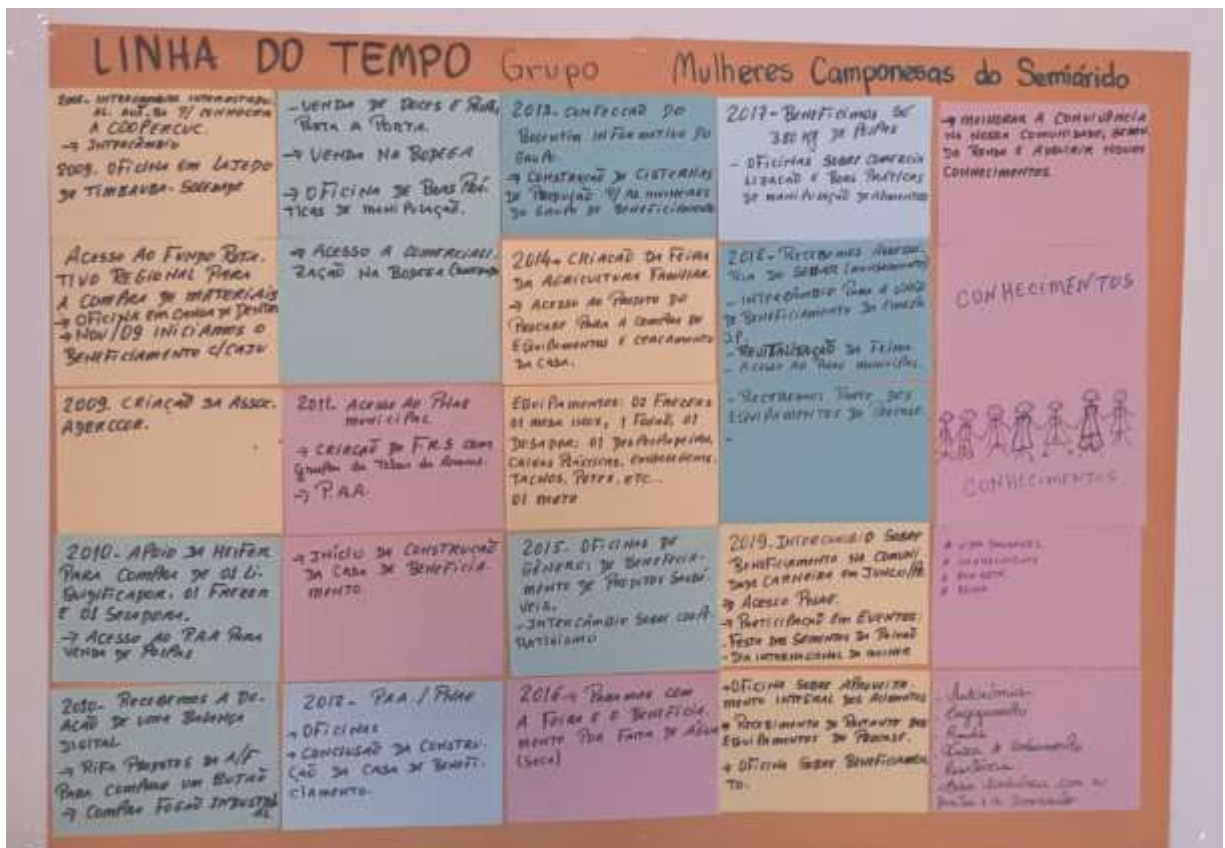 LINHA DO TEMPO Grupo Mulheres Camponesas do Semiárido
AL
A COOPERCUC.
→ INTERCÂMBIO
2009. OFICINA EM LAJEDO
DE TIMBAUBA - SOLEDADE
ACESSO AO FUNDO ROTA-
TIVO REGIONAL PARA
A COMPRA DE MATERIAIS
→ OFICINA EM
→ NOV/09 INICIAMOS O
BENEFICIAMENTO C/CAJU
2009. CRIAÇÃO DA ASSOC.
2010- APOIO DA HEIFER
PARA COMPRA DE 01 LI-
QUIDIFICADOR, 01 FREEZER
E 01 SELADORA.
→ ACESSO AO P.A.A PARA
VENDA DE POLPAS
2010- RECEBEMOS A DO-
AÇÃO DE UMA BALANÇA
DIGITAL
→ RIFA PRODUTOS DA A/F
PARA COMPRAR UM BUTIJÃO
→ COMPRA FOGÃO INDUSTRI
AL
- VENDA DE DOCES E
PORTA A PORTA.
→ VENDA NA BODEGA
→ OFICINA DE BOAS PRÁ-
TICAS DE MANIPULAÇÃO.
→ ACESSO A COMERCIALI-
ZAÇÃO NA BODEGA
2011. ACESSO AO PNAE
MUNICIPAL
→ CRIAÇÃO DO F.R.S COM
→ P.A.A
→ INÍCIO DA CONSTRUÇÃO
DA CASA DE BENEFICIA-
MENTO.
2012- PAA / PNAE
→ OFICINAS
→ CONCLUSÃO DA CONSTRU-
ÇÃO DA CASA DE BENEFI-
CIAMENTO.
2013. CONFECÇÃO DO
BOLETIM INFORMATIVO DO
GRUPO.
→ CONSTRUÇÃO DE CISTERNAS
DE PRODUÇÃO P/ AS MULHERES
DO GRUPO DE BENEFICIAMENTO
2014- CRIAÇÃO DA FEIRA
DA AGRICULTURA FAMILIAR
→ ACESSO AO PROJETO DO
PROCASE PARA A COMPRA DE
EQUIPAMENTOS E CERCAMENTO
DA CASA.
EQUIPAMENTOS: 02 FREEZERS
01 MESA INOX, 1 FOGÃO, 01
01 DESPOLPADEIRA,
CAIXAS PLÁSTICAS,
TACHOS, POTES, ETC...
01 MOTO
2015- OFICINAS DE
GÊNEROS DE BENEFICIA-
MENTO DE PRODUTOS SAUDÁ-
VEIS.
- INTERCÂMBIO SOBRE COOPE-
RATIVISMO
2016 → PARAMOS COM
A FEIRA E O BENEFICIA-
MENTO POR FALTA DE ÁGUA
(SECA)
2017- BENEFICIAMOS DE
380 KG DE POLPAS
- OFICINAS SOBRE COMERCIA
LIZAÇÃO E BOAS PRÁTICAS
DE MANIPULAÇÃO DE ALIMENTOS
2018- RECEBEMOS
- INTERCÂMBIO PARA A
DE BENEFICIAMENTO DA
- REVITALIZAÇÃO DA FEIRA.
- ACESSO AO PNAE MUNICIPAL.
- RECEBEMOS PARTE DOS
EQUIPAMENTOS DO PROCASE.
2019. INTERCÂMBIO SOBRE
BENEFICIAMENTO NA COMUNI-
DADE CARNEIRA EM
→ ACESSO PNAE.
→ PARTICIPAÇÃO EM EVENTOS:
- FESTA DAS SEMENTES DA PAIXÃO
- DIA INTERNACIONAL DA MULHER
→ OFICINA SOBRE APROVEITA-
MENTO INTEGRAL DOS ALIMENTOS
→ RECEBIMENTO DO RESTANTE DOS
EQUIPAMENTOS DO PROCASE.
→ OFICINA SOBRE BENEFICIAMEN
TO.
→ MELHORAR A CONVIVÊNCIA
NA NOSSA COMUNIDADE,
DO RENDA E ADQUIRIR NOVOS
CONHECIMENTOS
CONHECIMENTOS
CONHECIMENTOS
Autonomia
Engajamento
Renda